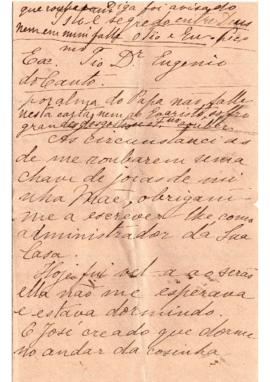 que
foi avisado
Isto é segredo entre
nem em mim falle o tio e Eu
Exc. Tio Dr Eugenio
do Canto.
por alma do Papá nao falle
nesta carta nem
As circunstancias
de me roubarem uma
chave de joias de mi
nha Mae, obrigam
me a escrever-lhe como
administrador da Sua
Casa.
Hoje fui vel-a ao serão
ella nao me esperava
e estava dormindo.
O José creado que dorme
no andar da cosinha